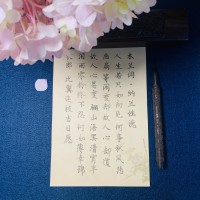 木兰词·纳兰性德
人生若只如初见 何事秋风悲
画扇 等闲变却故人心 却道
故人心易变 骊山语罢清宵半
泪雨零铃终不怨 何如薄幸锦
衣郎 比翼连枝当日愿